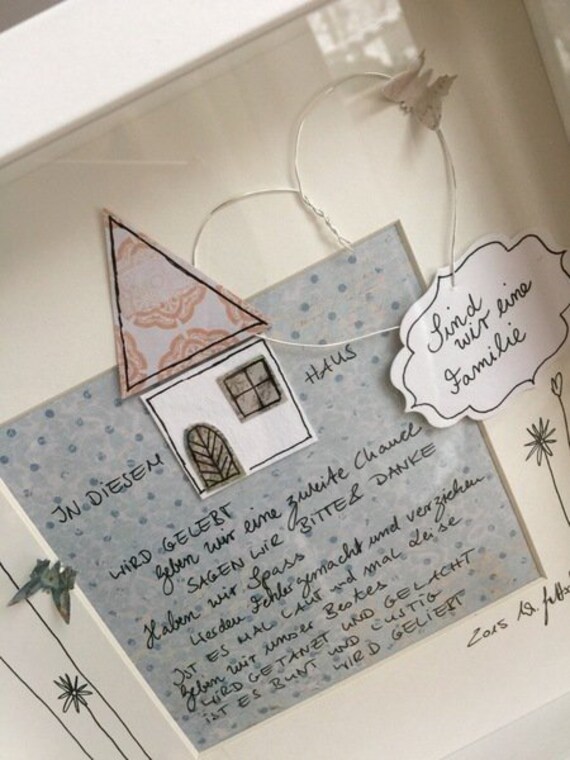 IN DIESEM HAUS
WIRD GELEBT
geben wir eine zweite Chance
SAGEN WIR BITTE & DANKE
Haben wir Spass
werden Fehler gemacht und verziehen
IST ES MAL LAUT und mal Leise
geben wir unser Bestes
WIRD GETANZT UND GELACHT
IST ES BUNT UND LUSTIG
WIRD GELIEBT
Sind
wir eine
Familie
2015